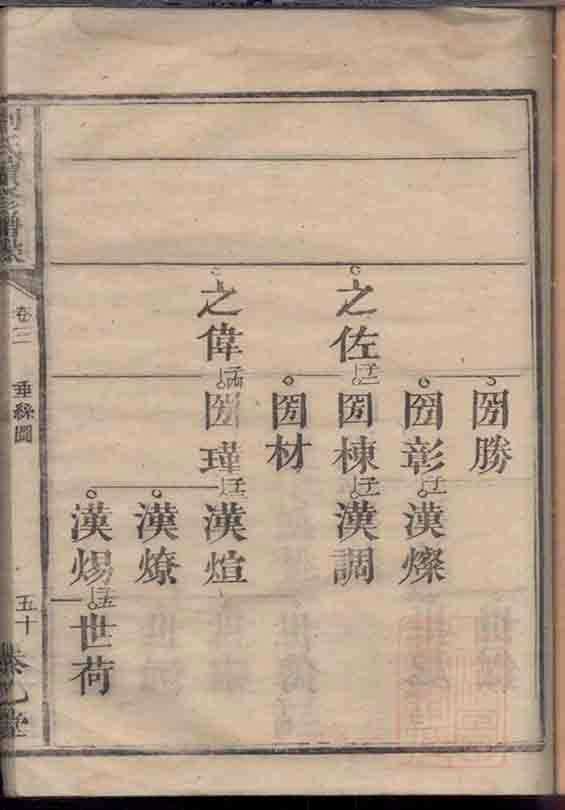 圀勝
圀彰 漢燦
之佐 圀棟 漢調
圀材
之偉 圀瑾 漢煊
漢燎
漢煬 世荷
氏續修譜
卷三 垂絲圖 五十 乙堂